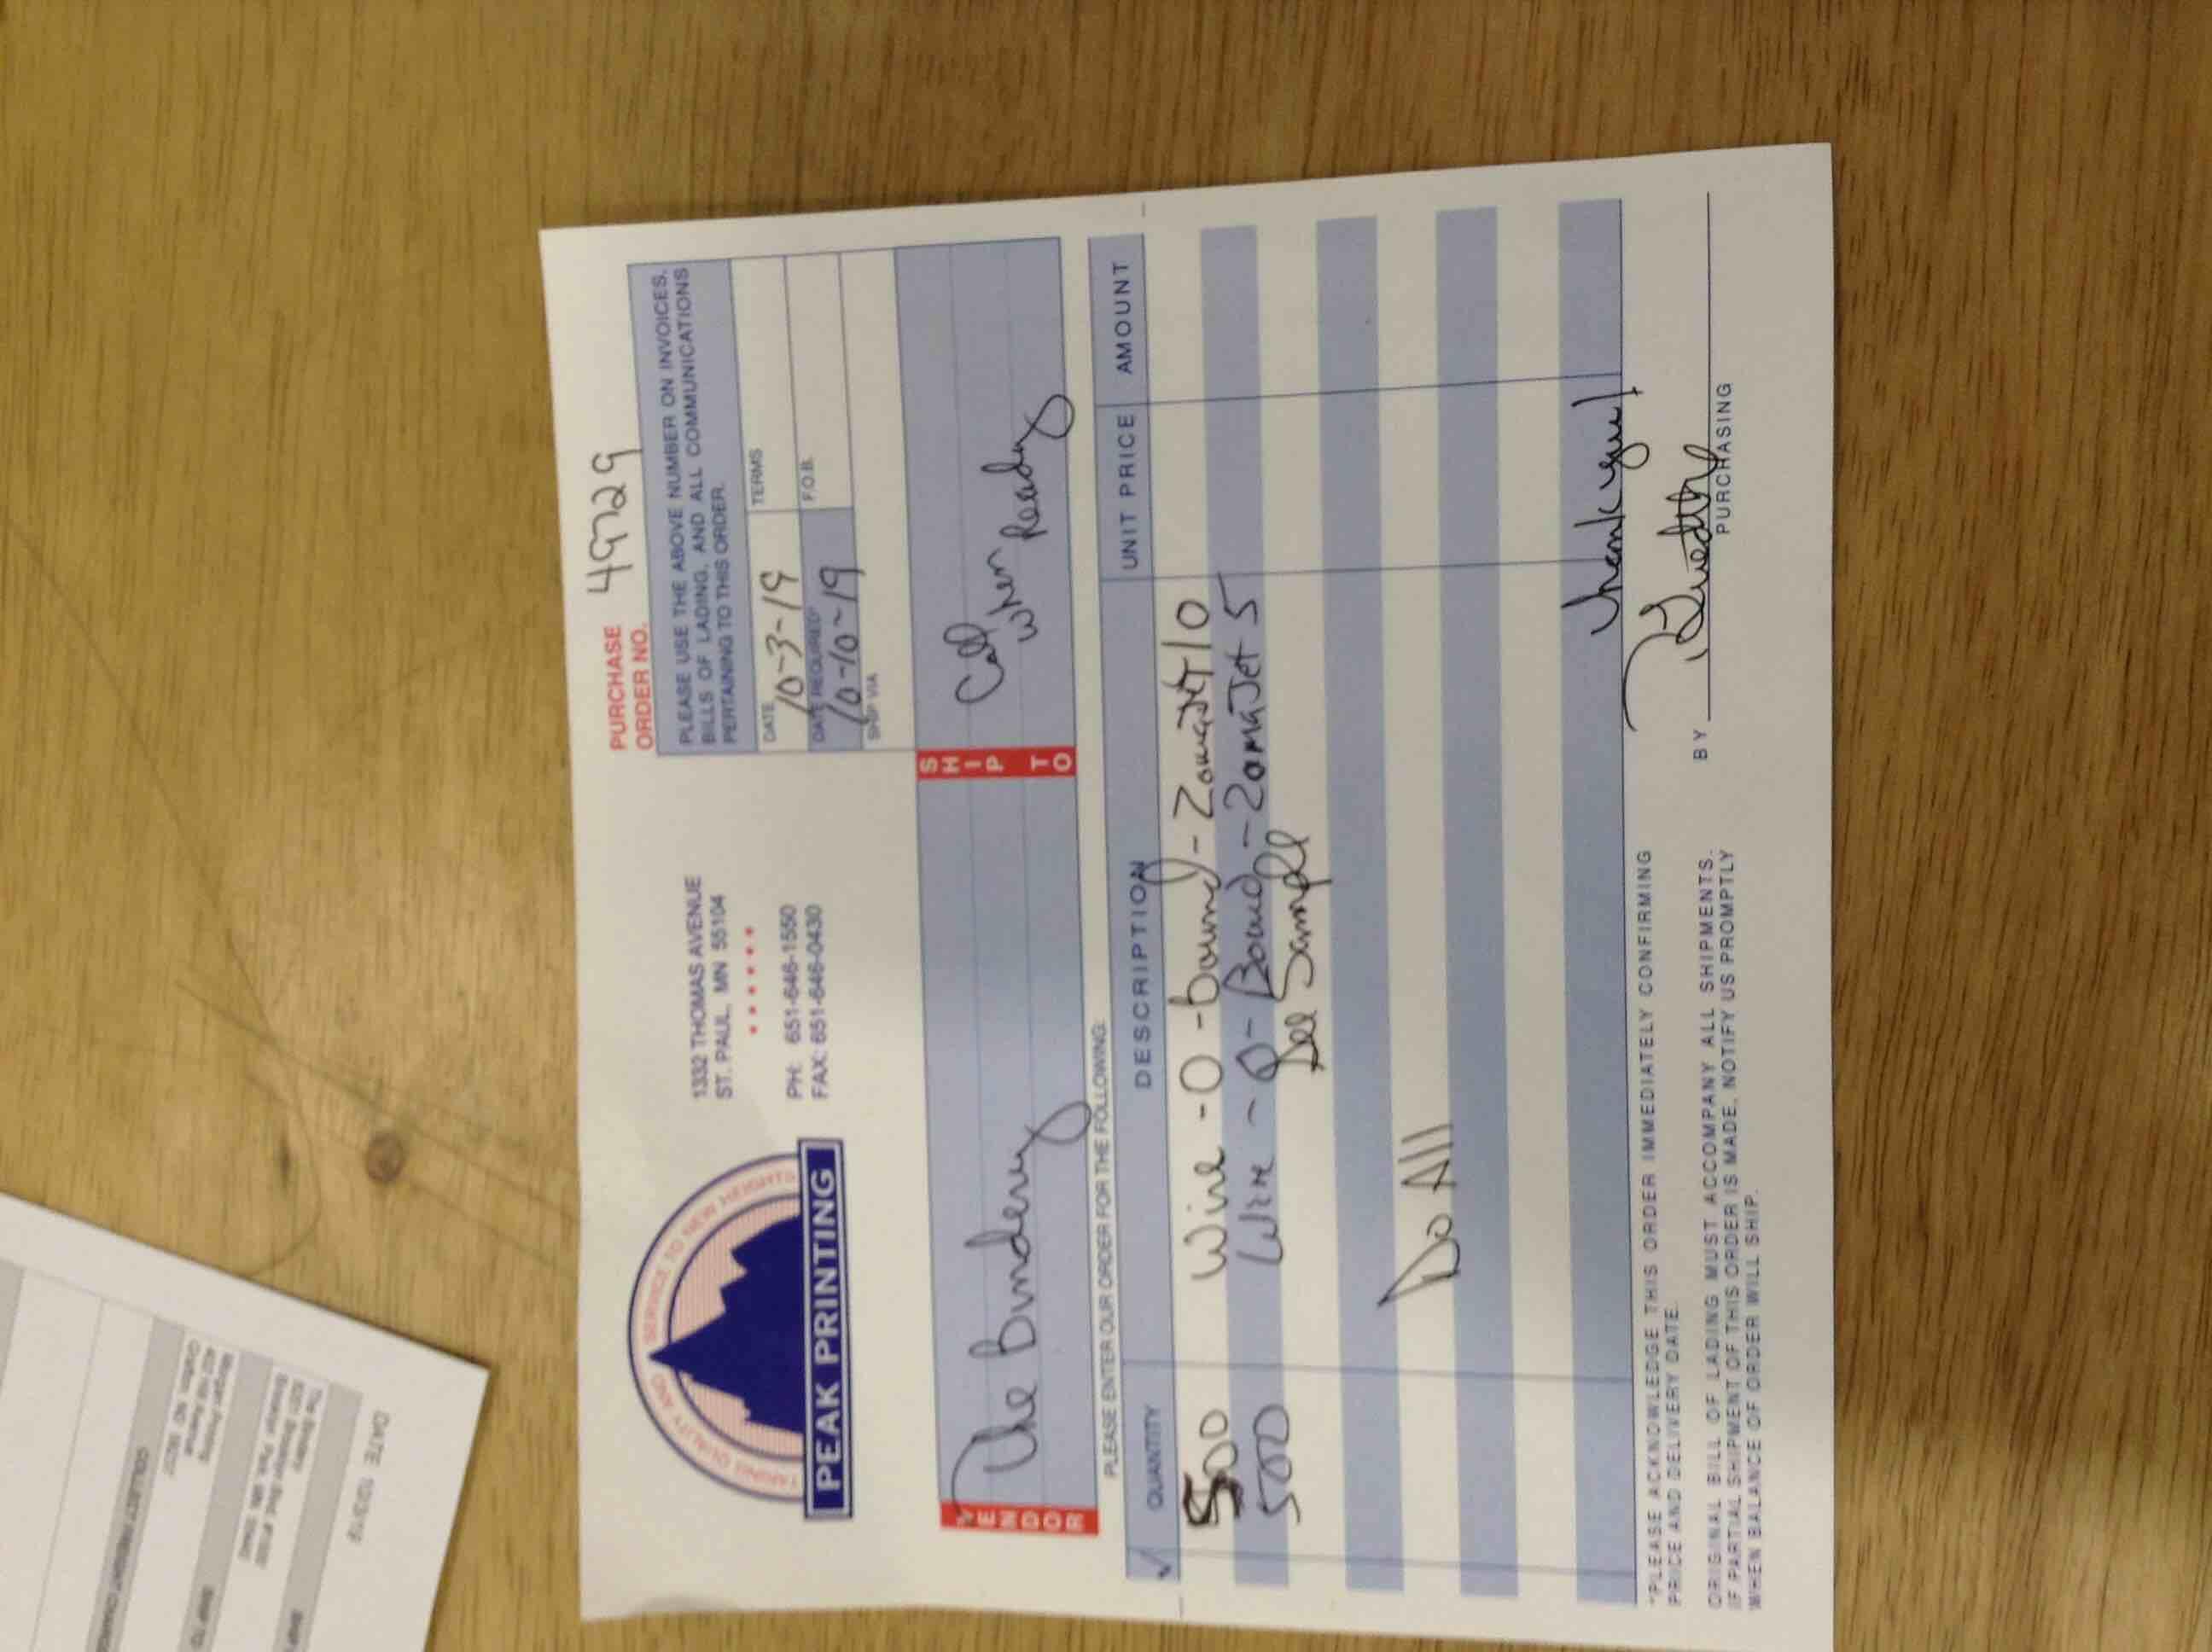 TAKING QUALITY AND SERVICE TO NEW HEIGHTS
PEAK PRINTING
1332 THOMAS AVENUE
ST. PAUL, MN 55104
PH: 651-646-1550
FAX: 651-646-0430
PURCHASE ORDER NO. 49729
PLEASE USE THE ABOVE NUMBER ON INVOICES,
BILLS OF LADING, AND ALL COMMUNICATIONS
PERTAINING TO THIS ORDER.
DATE 10-3-19 TERMS
DATE REQUIRED* 10-10-19 F.O.B.
SHIP VIA
VENDOR The Bindery
SHIP TO Call
when Ready
PLEASE ENTER OUR ORDER FOR THE FOLLOWING:
✓ QUANTITY DESCRIPTION UNIT PRICE AMOUNT
500 Wire-O-bound-ZomaJet 10
500 Wire-O-Bound-ZomaJet 5
See Sample
Do All
Thank you!
*PLEASE ACKNOWLEDGE THIS ORDER IMMEDIATELY CONFIRMING
PRICE AND DELIVERY DATE.
BY
PURCHASING
ORIGINAL BILL OF LADING MUST ACCOMPANY ALL SHIPMENTS.
IF PARTIAL SHIPMENT OF THIS ORDER IS MADE, NOTIFY US PROMPTLY
WHEN BALANCE OF ORDER WILL SHIP.
DATE
The Bindery
COLLECT FREIGHT CHARGES